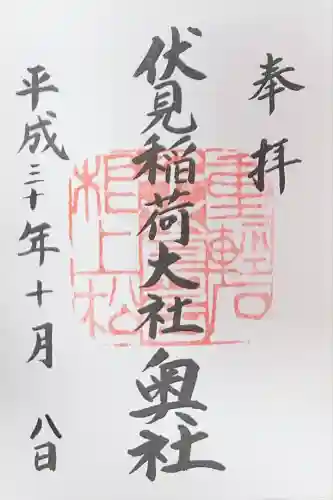 奉拝
伏見稲荷大社 奥社
平成三十年十月 八日